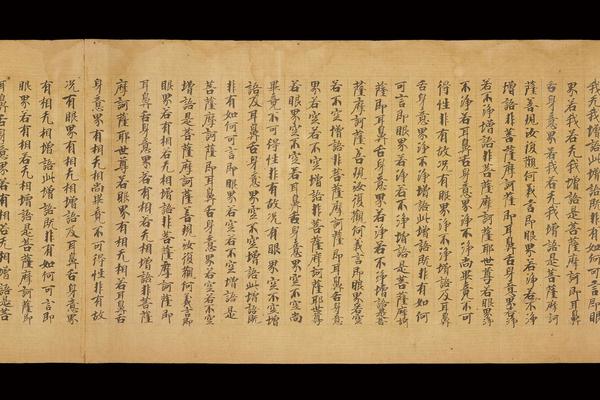 我无我增語此增語既非有如何可言即眼
界若我若无我增語是菩薩摩訶薩即耳鼻
舌身意界若我若无我增語是菩薩摩訶
薩善現汝復觀何義言即眼界若淨若不淨
增語非菩薩摩訶薩即耳鼻舌身意界若淨
若不淨增語非菩薩摩訶薩耶世尊若眼界淨
不淨若耳鼻舌身意界淨不淨尚畢竟不可
得性非有故況有眼界淨不淨增語及耳鼻
舌身意界淨不淨增語此增語既非有如何
可言即眼界若淨若不淨增語是菩薩摩訶
薩即耳鼻舌身意界若淨若不淨增語是菩
薩摩訶薩善現汝復觀何義言即眼界若空
若不空增語非菩薩摩訶薩即耳鼻舌身意
界若空若不空增語非菩薩摩訶薩耶世尊
若眼界空不空若耳鼻舌身意界空不空尚
畢竟不可得性非有故況有眼界空不空增
語及耳鼻舌身意界空不空增語此增語既
非有如何可言即眼界若空若不空增語是
菩薩摩訶薩即耳鼻舌身意界若空若不空
增語是菩薩摩訶薩善現汝復觀何義言即
眼界若有相若无相增語非菩薩摩訶薩即
耳鼻舌身意界若有相若无相增語非菩薩
摩訶薩耶世尊若眼界有相无相若耳鼻舌
身意界有相无相尚畢竟不可得性非有故
況有眼界有相无相增語及耳鼻舌身意界
有相无相增語此增語既非有如何可言即
眼界若有相若无相增語是菩薩摩訶薩即
耳鼻舌身意界若有相若无相增語是菩